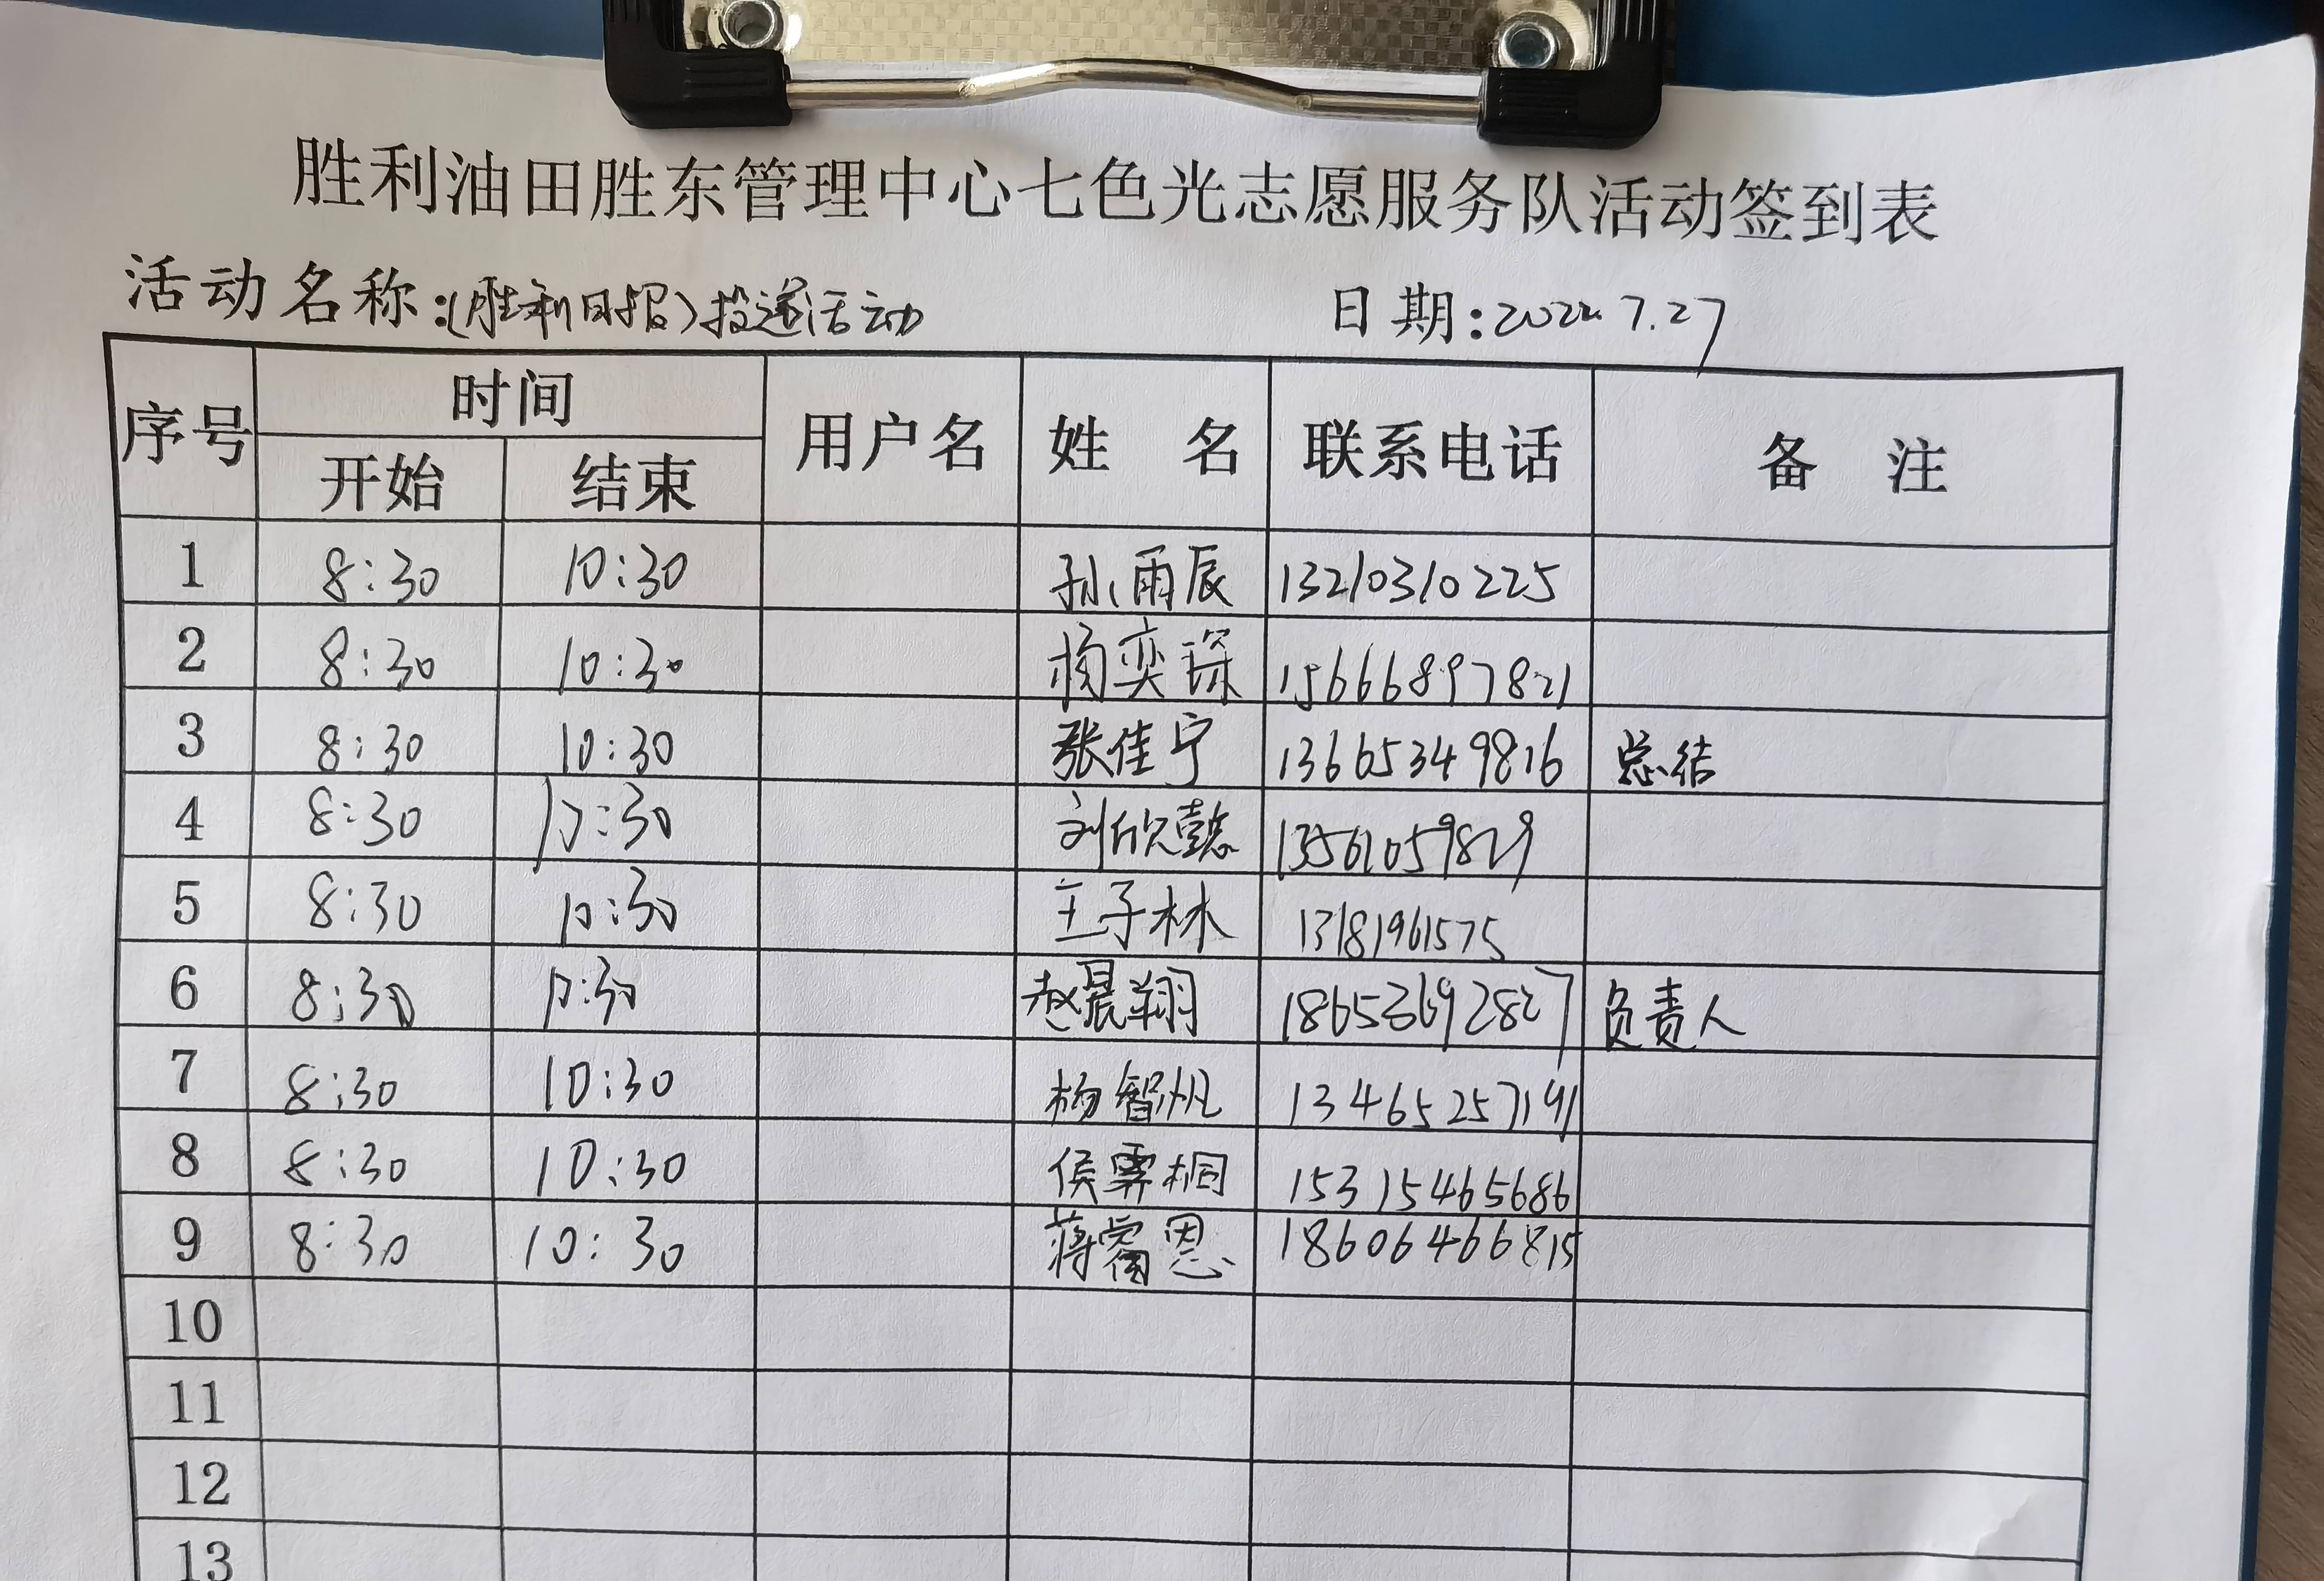 胜利油田胜东管理中心七色光志愿服务队活动签到表
活动名称:(胜利日报)投递活动 日期:2022.7.27
序号 时间 用户名 姓 名 联系电话 备 注
开始 结束
1 8:30 10:30 孙雨辰 13210310225
2 8:30 10:30 杨奕琛 15666897821
3 8:30 10:30 张佳宁 13665349816 总结
4 8:30 10:30 刘欣懿 13561059829
5 8:30 10:30 王子林 13181961575
6 8:30 10:30 赵晨翔 18653692827 负责人
7 8:30 10:30 杨智帆 13465257191
8 8:30 10:30 侯霁桐 15315465686
9 8:30 10:30 蒋睿恩 18606466815
10
11
12
13